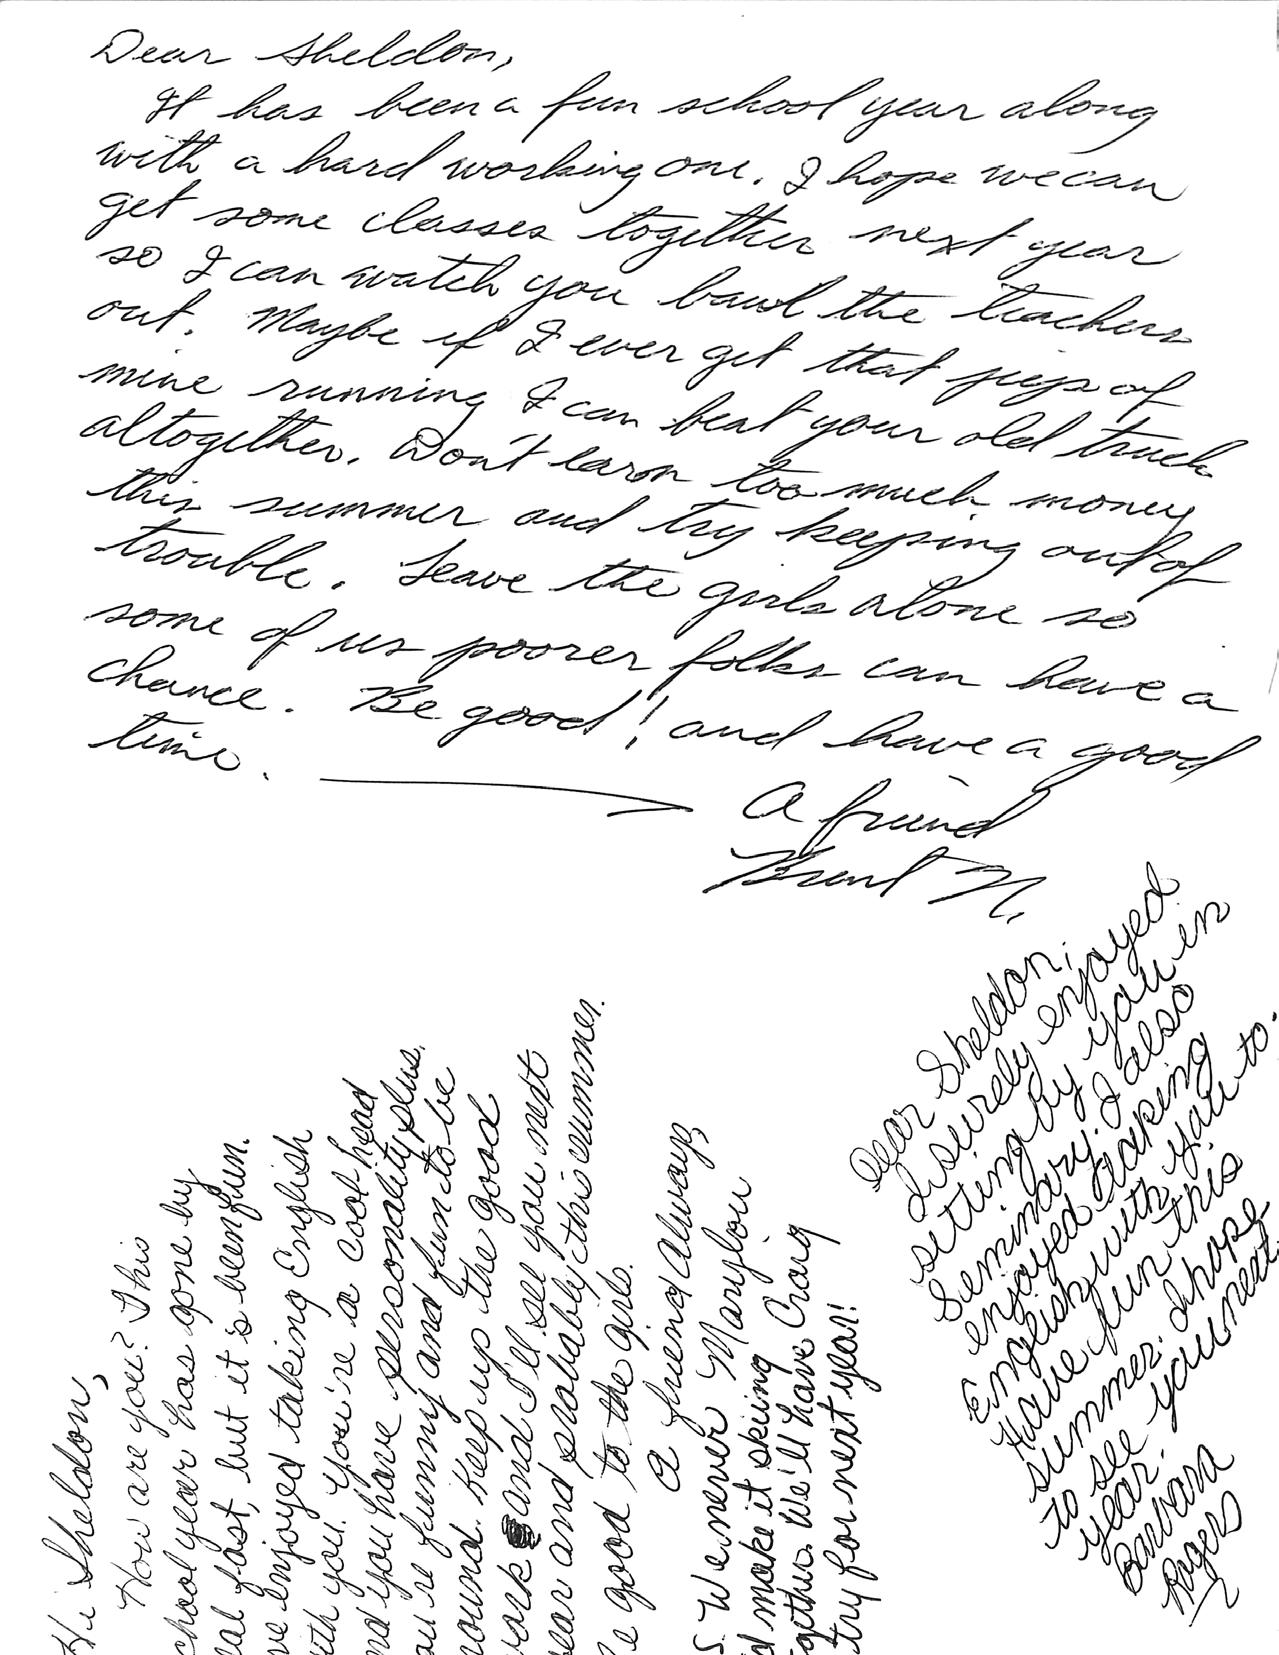 Dear Sheldon,
It has been a fun school year along
with a hard working one. I hope we can
get some classes together next year
so I can watch you bawl the teachers
out. Maybe if I ever get that jeep of
mine running I can beat your old truck
altogether. Don't earn too much money
this summer and try keeping out of
trouble. Leave the girls alone so
some of us poorer folks can have a
chance. Be good! and have a good
time.
A friend
Brent N.
Hi Sheldon,
How are you? This
chool year has gone by
eal fast, but it's been fun.
ve enjoyed taking English
ith you. You're a cool head
nd you have personality plus.
ou're funny and fun to be
round. Keep up the good
work and I'll see you next
ear and probably this summer.
e good to the girls.
A friend always,
Marylou
S. We never
d make it skiing
gether. We'll have Craig
try for next year!
Dear Sheldon,
I surely enjoyed
setting by you in
Seminary. I also
enjoyed taking
English with you to.
Have fun this
summer. I hope
to see you next
year.
Barbara
Rogers